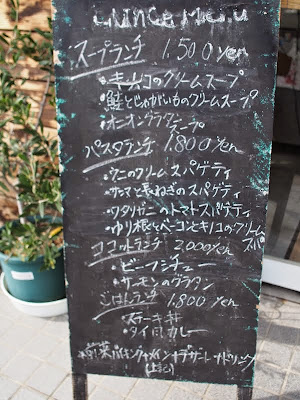 Lunce Menu
スープランチ 1,500yen
・キノコのクリームスープ
・鮭とじゃがいものクリームスープ
・オニオングラタンスープ
パスタランチ 1,800yen
・ウニのクリームスパゲティ
・サンマと長ねぎのスパゲティ
・ワタリガニのトマトスパゲティ
・ゆり根とベーコンとキノコのクリームスパ
ココットランチ 2,000yen
・ビーフシチュー
・サーモンのグラタン
ごはんランチ 1,800yen
・ステーキ丼
・タイ風カレー
前菜バイキング+メイン+デザート+ドリンク